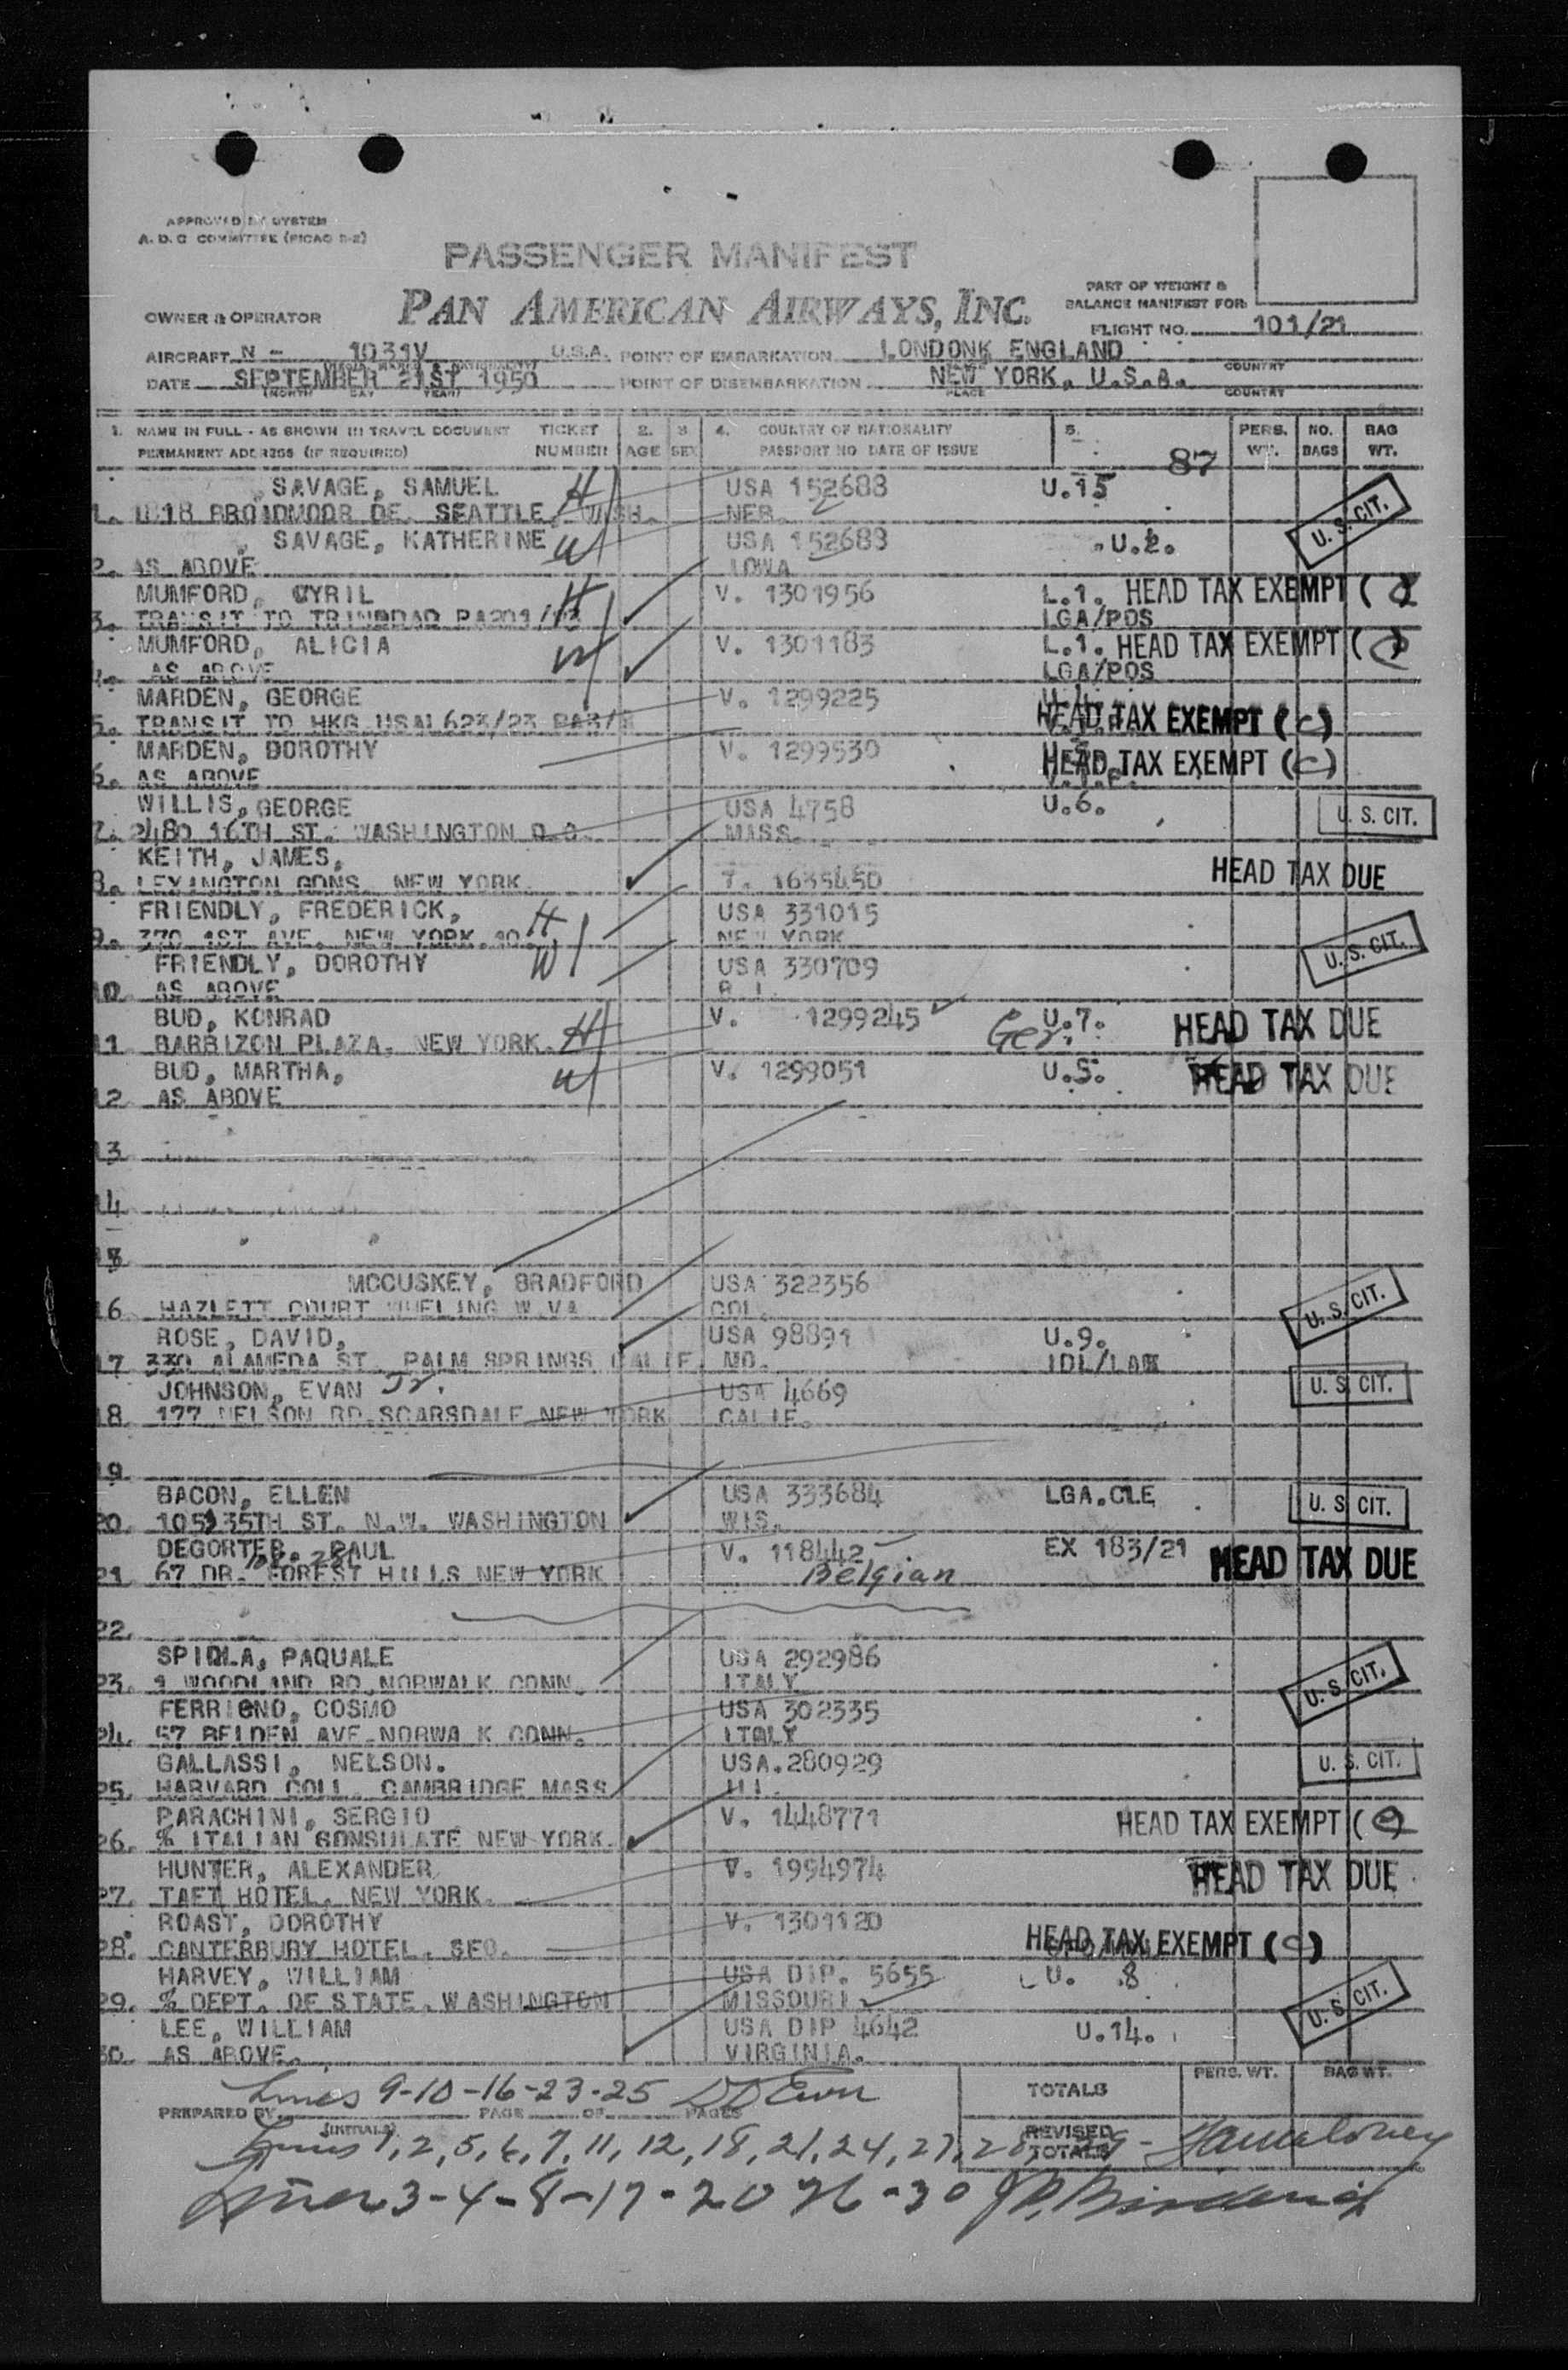 APPROVED BY SYSTEM
A. D. C COMMITTEE (PICAO 2-2)
PASSENGER MANIFEST
PAN AMERICAN AIRWAYS, INC.
PART OF WEIGHT &
BALANCE MANIFEST FOR
OWNER & OPERATOR
FLIGHT NO. 101/21
AIRCRAFT N - 1031V U.S.A. POINT OF EMBARKATION LONDONK ENGLAND COUNTRY
DATE SEPTEMBER 21ST 1950 POINT OF DISEMBARKATION NEW YORK, U.S.A.
(MONTH DAY YEAR) PLACE COUNTRY
1. NAME IN FULL - AS SHOWN IN TRAVEL DOCUMENT TICKET 2. 3 4. COUNTRY OF NATIONALITY 5. PERS. NO. BAG
PERMANENT ADDRESS (IF REQUIRED) NUMBER AGE SEX PASSPORT NO DATE OF ISSUE 87 WT. BAGS WT.
SAVAGE, SAMUEL H USA 152688 U.15
1. 1818 BROADMOOR DE. SEATTLE, WASH. NEB. U. S. CIT.
SAVAGE, KATHERINE W USA 152688 U.2.
2. AS ABOVE IOWA
MUMFORD, CYRIL H V. 1301956 L.1. HEAD TAX EXEMPT (
3. TRANSIT TO TRINDDAD PA201/ LGA/POS
MUMFORD, ALICIA W V. 1301183 L.1. HEAD TAX EXEMPT (
4. AS ABOVE LGA/POS
MARDEN, GEORGE V. 1299225
5. TRANSIT TO HKG USAL623/23 HEAD TAX EXEMPT (C)
MARDEN, DOROTHY V. 1299530
6. AS ABOVE HEAD TAX EXEMPT (C)
WILLIS, GEORGE USA 4758 U.6.
7. 2480 16TH ST. WASHINGTON D.C. MASS. U. S. CIT.
KEITH, JAMES,
8. LEXINGTON GDNS. NEW YORK 7. 1635450 HEAD TAX DUE
FRIENDLY, FREDERICK, H USA 331015
9. 370 1ST AVE. NEW YORK 10. NEW YORK U. S. CIT.
FRIENDLY, DOROTHY W USA 330709
10 AS ABOVE R.I.
BUD, KONRAD V. 1299245 Ger. U.7. HEAD TAX DUE
11 BARBIZON PLAZA, NEW YORK. H
BUD, MARTHA, W V. 1299051 U.5. HEAD TAX DUE
12 AS ABOVE
13
14
15
MCCUSKEY, BRADFORD USA 322356
16 HAZLETT COURT WHELING W.VA COL. U. S. CIT.
ROSE, DAVID, USA 98891 U.9.
17 330 ALAMEDA ST. PALM SPRINGS CALIF. MO. IDL/LAX
JOHNSON, EVAN Jr. USA 4669 U. S. CIT.
18 177 NELSON RD.SCARSDALE NEW YORK CALIF.
19
BACON, ELLEN USA 333684 LGA.CLE
20. 35TH ST. N.W. WASHINGTON WIS. U. S CIT.
DEGORTER, PAUL V. 118442 EX 183/21
21 67 DR. FOREST HILLS NEW YORK Belgian HEAD TAX DUE
22.
SPIOLA, PAQUALE USA 292986
23. 1 WOODLAND RD.NORWALK CONN. ITALY U. S. CIT.
FERRIGNO, COSMO USA 302335
24. 57 BELDEN AVE.NORWA K CONN. ITALY
GALLASSI, NELSON. USA.280929
25. HARVARD COLL. CAMBRIDGE MASS ILL. U. S. CIT.
PARACHINI, SERGIO V. 1448771 HEAD TAX EXEMPT (
26. % ITALIAN CONSULATE NEW YORK.
HUNTER, ALEXANDER V. 1994974 HEAD TAX DUE
27. TAFT HOTEL. NEW YORK.
ROAST, DOROTHY V. 1301120
28. CANTERBURY HOTEL. SFO. HEAD TAX EXEMPT (C)
HARVEY, WILLIAM USA DIP. 5655 U. 8
29. % DEPT. OF STATE. WASHINGTON MISSOURI U. S. CIT.
LEE, WILLIAM USA DIP 4642 U.14.
30. AS ABOVE. VIRGINIA.
Lines 9-10-16-23-25 TOTALS PERS. WT. BAG WT.
PREPARED BY PAGE OF PAGES
(INITIALS)
Lines 1, 2, 5, 6, 7, 11, 12, 18, 21, 24, 27, 28, 29 - REVISED TOTALS
Lines 3-4-8-17-20 26-30